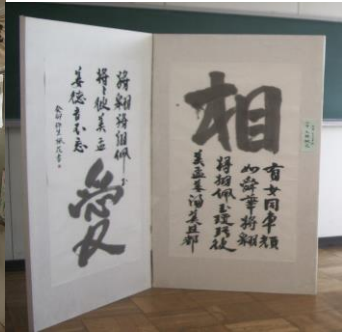 相
有女同車顏
如舜華將翱
將翔佩玉瓊琚彼
美孟姜洵美且都
將翱將翔佩玉
將々彼美孟
姜德音不忘
愛